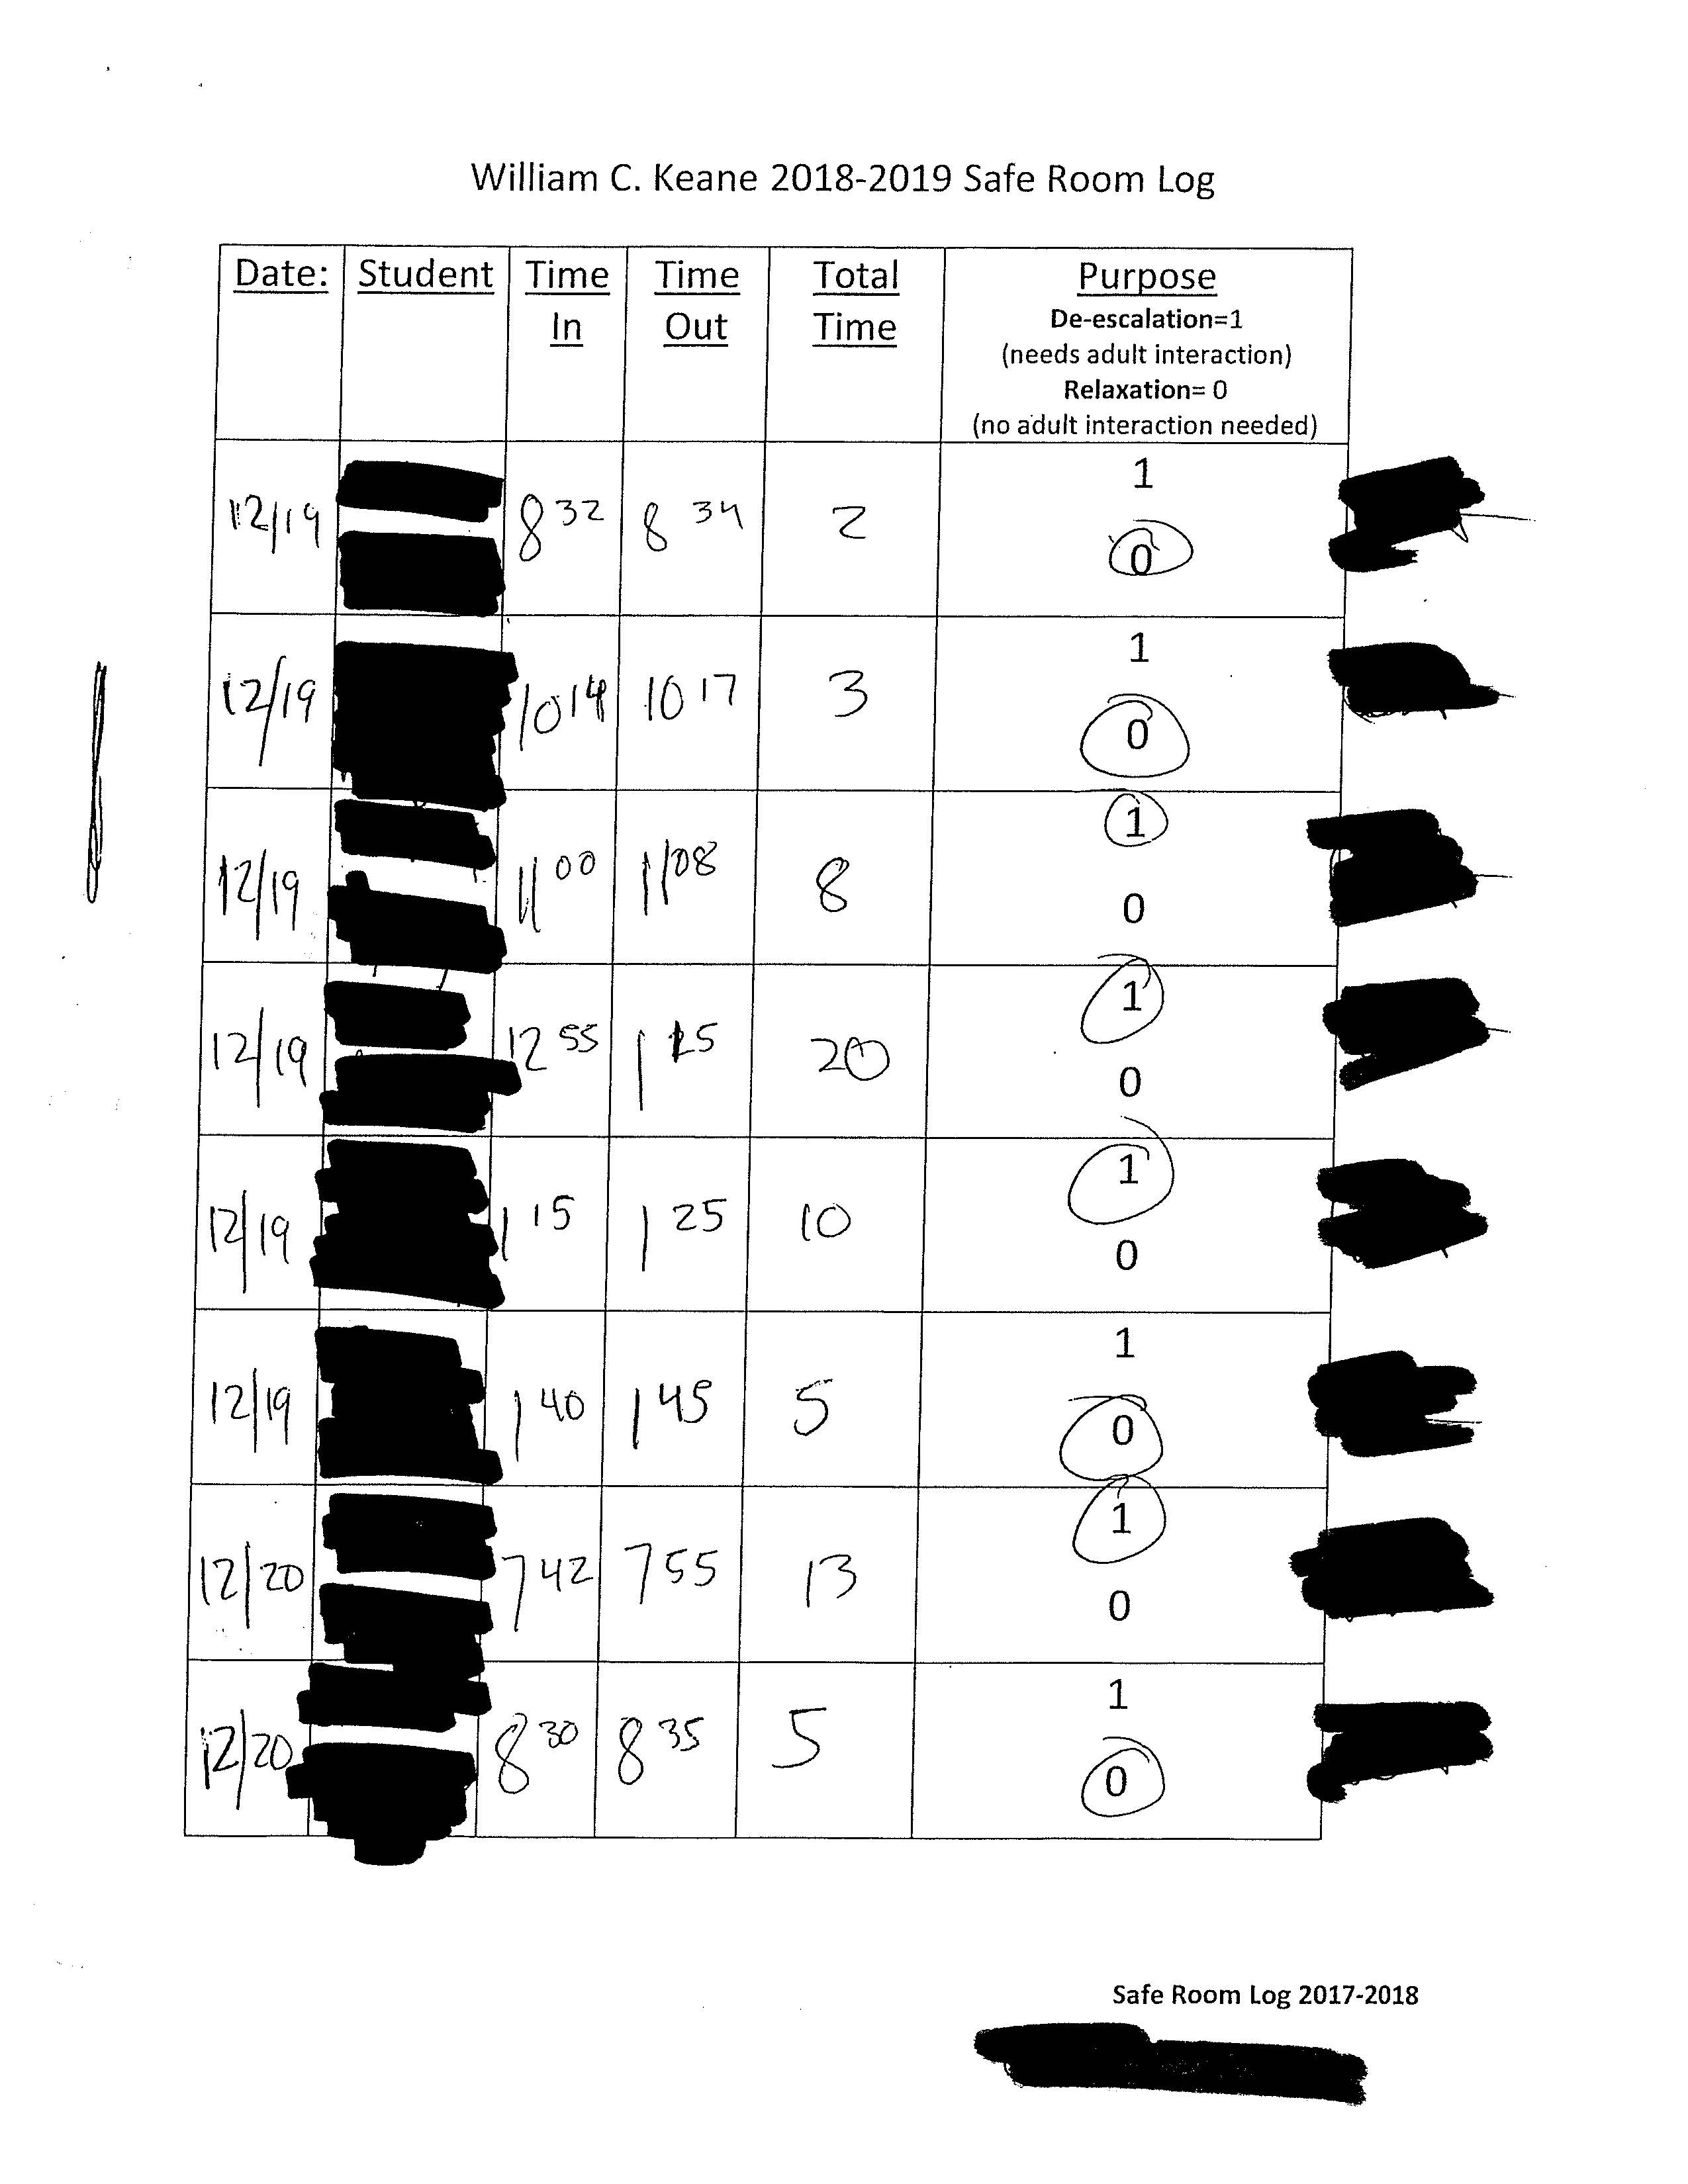 William C. Keane 2018-2019 Safe Room Log
Date: Student Time In Time Out Total Time Purpose
De-escalation=1
(needs adult interaction)
Relaxation= 0
(no adult interaction needed)
12/19 8 32 8 34 2 1 0
12/19 10 14 10 17 3 1 0
12/19 11 00 11 08 8 1 0
12/19 12 55 1 20 1 0
12/19 1 15 1 25 10 1 0
12/19 1 40 1 45 5 1 0
12/20 7 42 7 55 13 1 0
12/20 8 30 8 35 5 1 0
Safe Room Log 2017-2018